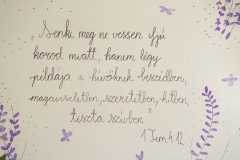 „Senki meg ne vessen ifjú
korod miatt, hanem légy
példája a hívőknek beszédben,
magaviseletben, szeretetben, hitben,
tiszta szívben"
1 Tim 4.12